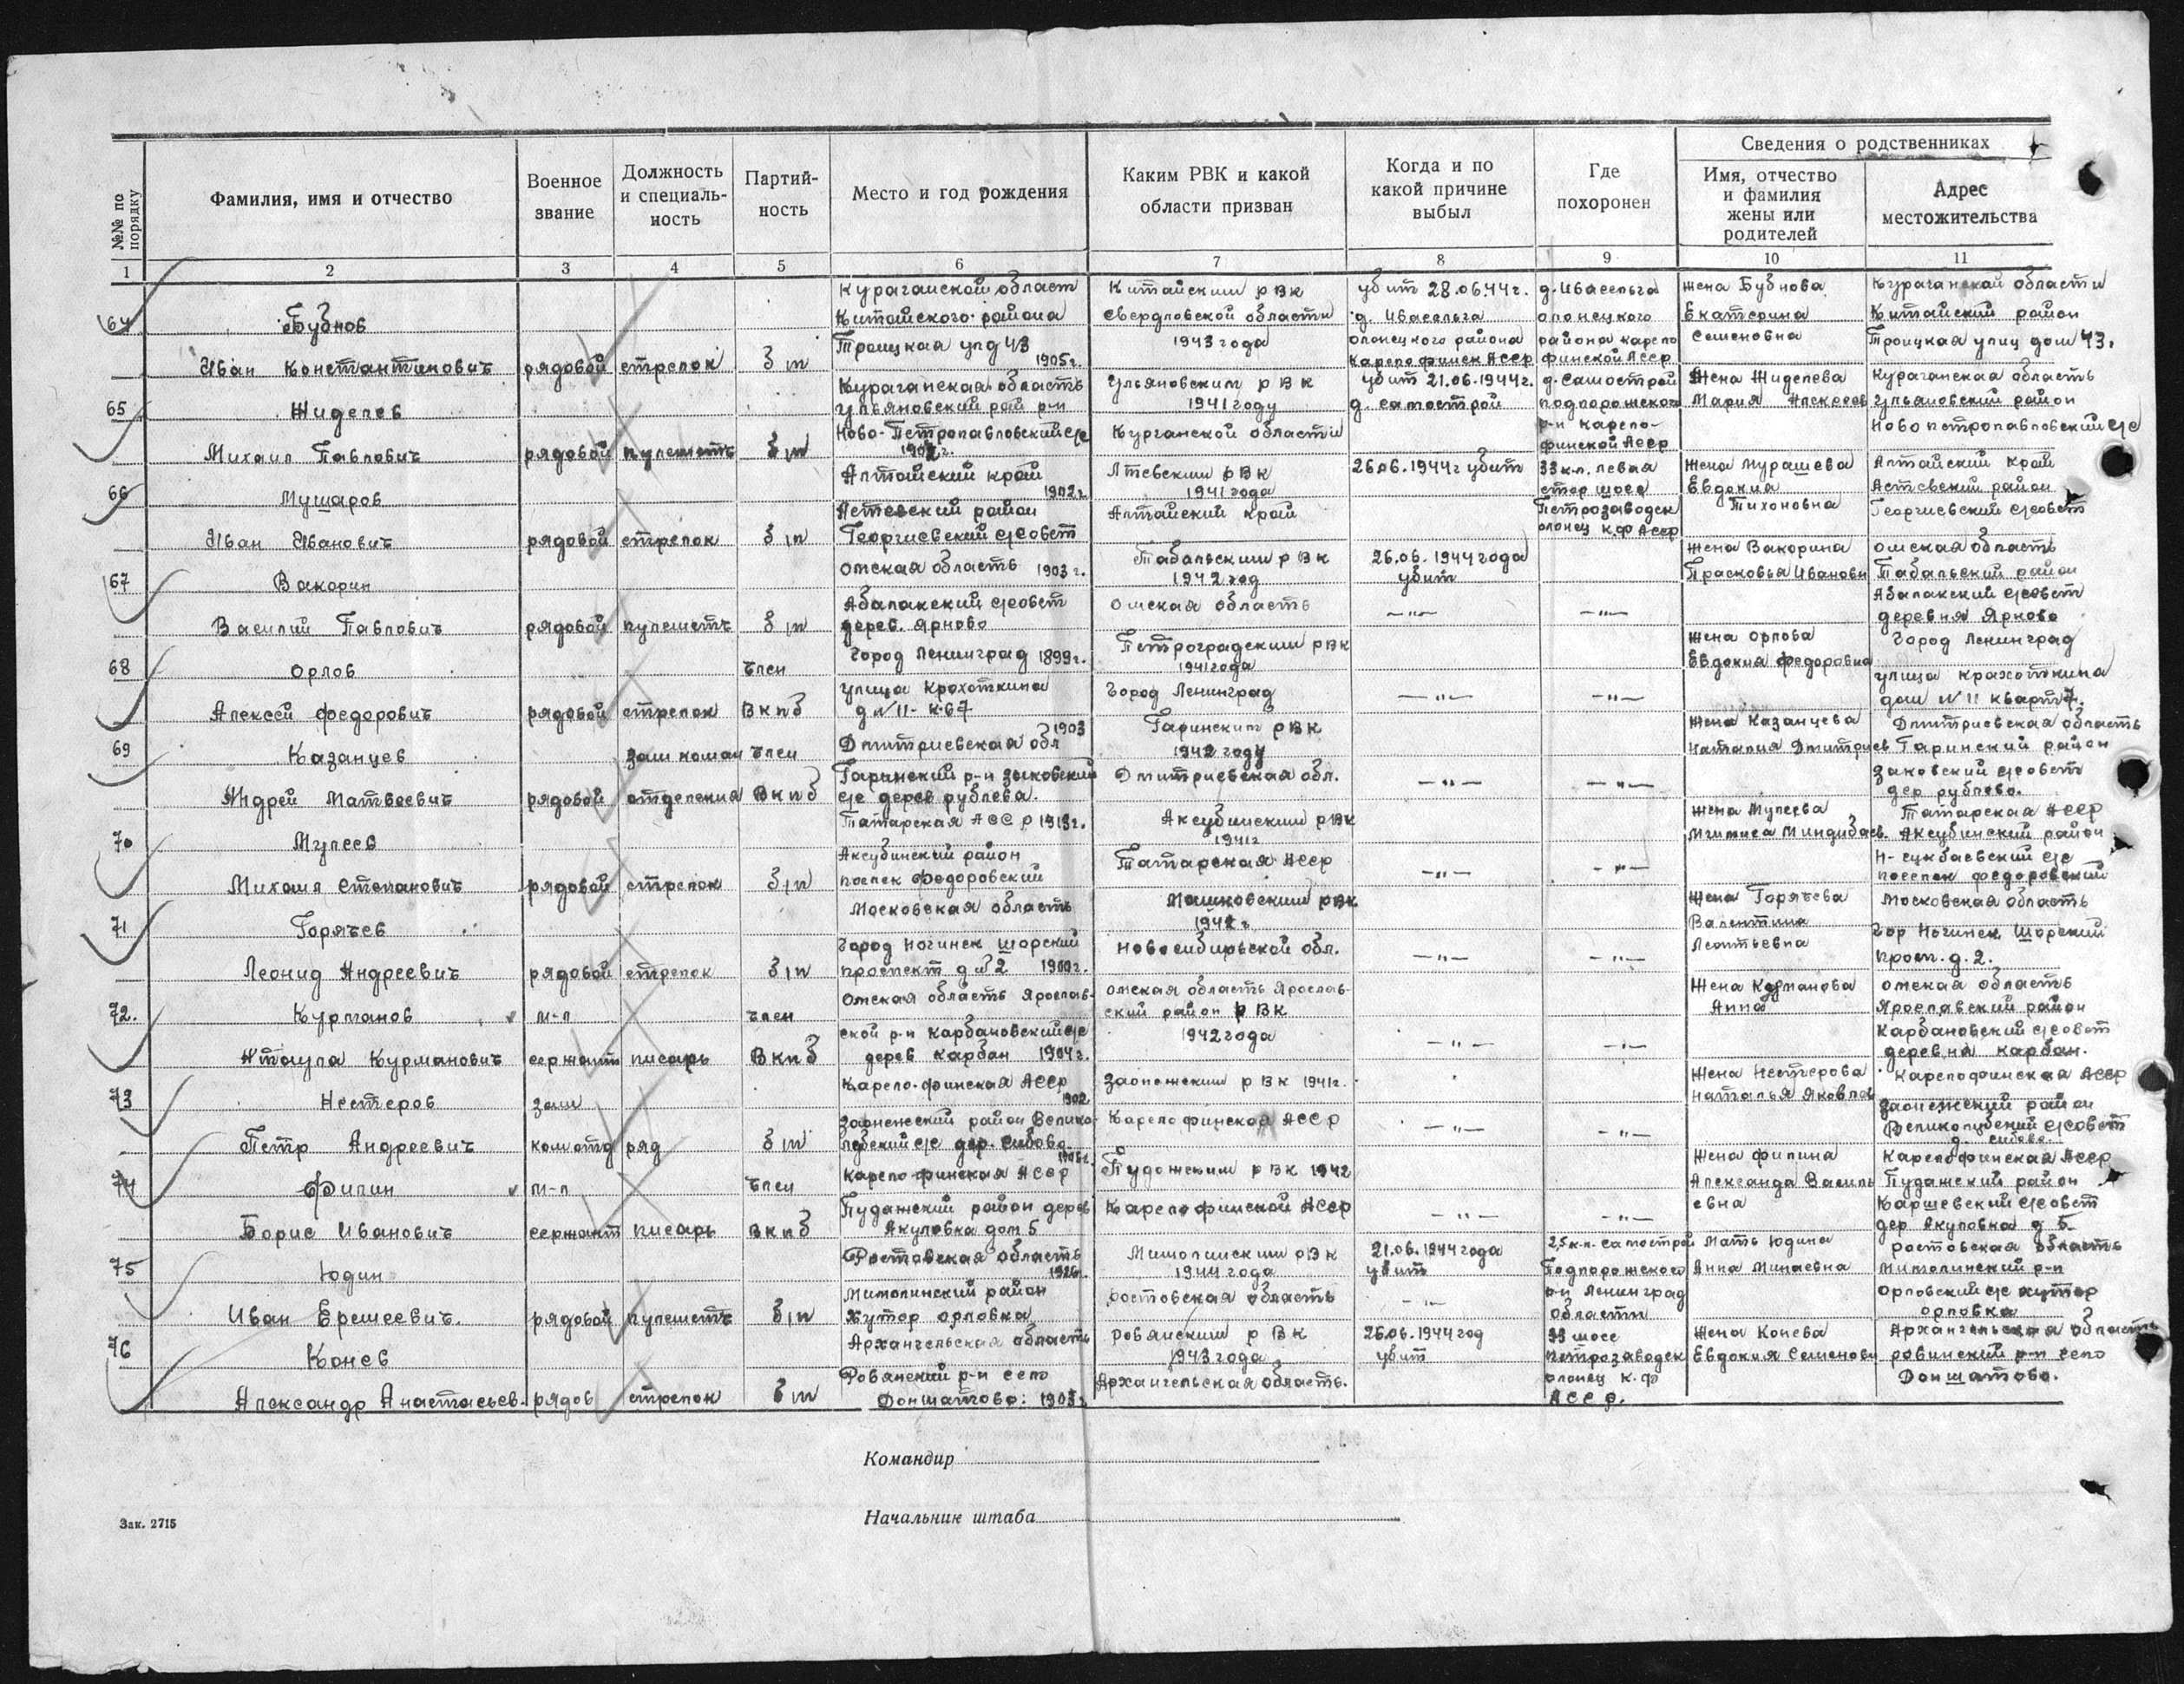 №№ по порядку
Фамилия, имя и отчество
Военное звание
Должность и специальность
Партийность
Место и год рождения
Каким РВК и какой области призван
Когда и по какой причине выбыл
Где похоронен
Сведения о родственниках
Имя, отчество и фамилия жены или родителей
Адрес местожительства
1 2 3 4 5 6 7 8 9 10 11
64
Бубнов
Иван Константиновичъ
рядовой
стрелок
б/п
Кураганской област
Китайского района
Троицкая улд 43
1905г.
Китайским рвк
Свердловской области
1943 года
убит 28.06.44г.
д. Ивасельга
олонецкого района
Карелофинск АССР
д. Ивасельга
олонецкого
района карело
финской АССР
жена Бубнова
Екатерина
Семеновна
Кураганской области
Китайский район
Троицкая улиц дом 43.
65
Жиделев
Михаил Павловичъ
рядовой
пулеметчъ
б/п
Кураганская область
Ульяновский рай р-н
Ново-Петропавловский с/с
Ульяновским рвк
1941 году
Курганской области
убит 21.06.1944г.
д. самострой
д. самострой
подпорожского
р-н карело-
финской АССР
Жена Жиделева
Мария Алексеев
Кураганская область
Ульяновский район
Ново петропавловский с/с
66
Мушаров
Иван Ивановичъ
рядовой
стрелок
б/п
Алтайский край
1902г
Георгиевский с/совет
1941 года
Алтайский край
26.06.1944г убит
33 к.л. левая
стор шосе
Петрозаводск
олонец к.ф АССР
Жена Мурашева
Евдокия
Тихоновна
Алтайский край
Георгиевский с/совет
67
Вакорин
Василий Павловичъ
рядовой
пулеметчъ
б/п
омская область 1903г.
Абалакский с/совет
дерев. Ярково
Табальским рвк
1942 год
Омская область
26.06.1944 года
убит
—"—
—"—
жена Вакорина
Прасковья Ивановн
омская область
Табальский район
Абалакский с/совет
деревня Ярково
68
Орлов
Алексей Федоровичъ
рядовой
стрелок
член
ВКПб
Город Ленинград 1899г.
улица Крохоткина
д №11- к.67
Петроградским рвк
1941 года
Город Ленинград
—"—
—"—
жена Орлова
Евдокия Федоровна
Город Ленинград
улица крахоткина
69
Казанцев
Андрей Матвеевичъ
рядовой
зам коман
отделения
член
ВКПб
1903
Дмитриевская обл
Гаринский р-н зыковский
с/с дерев рублева.
Гаринским рвк
1942 году
Дмитриевская обл.
—"—
—"—
Жена Казанцева
Наталия Дмитриев
Дмитриевская область
Гаринский район
заковский с/совет
дер рублево.
70
Мулеев
Михаил Степановичъ
рядовой
стрелок
б/п
Татарская АССР 1913г.
Аксубинский район
поселк Федоровский
Аксубинским рвк
1941г
Татарская АССР
—"—
—"—
жена Мулеева
Татарская АССР
Аксубинский район
поселок федоровский
71
Горячев
Леонид Андреевичъ
рядовой
стрелок
б/п
Московская область
Город Ногинск шорский
проспект д №2 1900г.
Машковским рвк
1942г
Новосибирьской обл.
—"—
—"—
Жена Горячева
Валентина
Леонтьевна
Московская область
Гор Ногинск Шорский
просп. д. 2.
72.
Курманов
Атаула Курмановичъ
м-л
сержант
писарь
член
ВКПб
Омская область Ярослав-
ской р-н Карбановский с/с
дерев Карбан 1904г.
омская область Ярослав-
ский район РВК
1942 года
—"—
—"—
Жена Курманова
Анна
омская область
Ярославский район
Карбановский с/совет
деревня карбан.
73
Нестеров
Петр Андреевичъ
зам
ком отд
ряд
б/п
Карело-финская АССР
1902
заонежский район Велико-
губский с/с дер. Сибово
Заонежским рвк 1941г.
Карело финская АССР
—"—
—"—
Жена Нестерова
Наталья Яковлев
Карелофинская АССР
заонежский район
Великогубский с/совет
74
Филин
Борис Ивановичъ
м-л
сержант
писарь
член
ВКПб
Карело финская АССР
Пудажский район дерев
Акуловка дом 5
Пудожским рвк 1942
Карелофинской АССР
—"—
—"—
Жена Филина
Александа Василь
евна
Карелофинская АССР
Пудажский район
Каршевский с/совет
дер. Акуловка д 5-
75
Юдин
Иван Еремеевичъ.
рядовой
пулеметчъ
б/п
Ростовская область
1926г.
Митолинский район
Хутор орловка
1944 года
ростовская область
21.06.1944 года
убит
—"—
2,5 к.л. самострой
Подпорожского
р-н Ленинград
области
Мать Юдина
Анна Минаевна
ростовская область
Митолинский р-н
Орловский с/с хутор
орловка
76
Конев
Александр Анастасьев.
рядов
стрелок
б/п
Архангельская область
Ровянский р-н село
Доншатово: 1903г
ровянским рвк
1943 года
Архангельская область.
26.06.1944 год
убит
33 шосе
петрозаводск
олонец к.ф
АССР.
Жена Конева
Евдокия Семеновн
Архангельская область
ровинский р-н село
Доншатово.
Командир
Начальник штаба
Зак. 2715